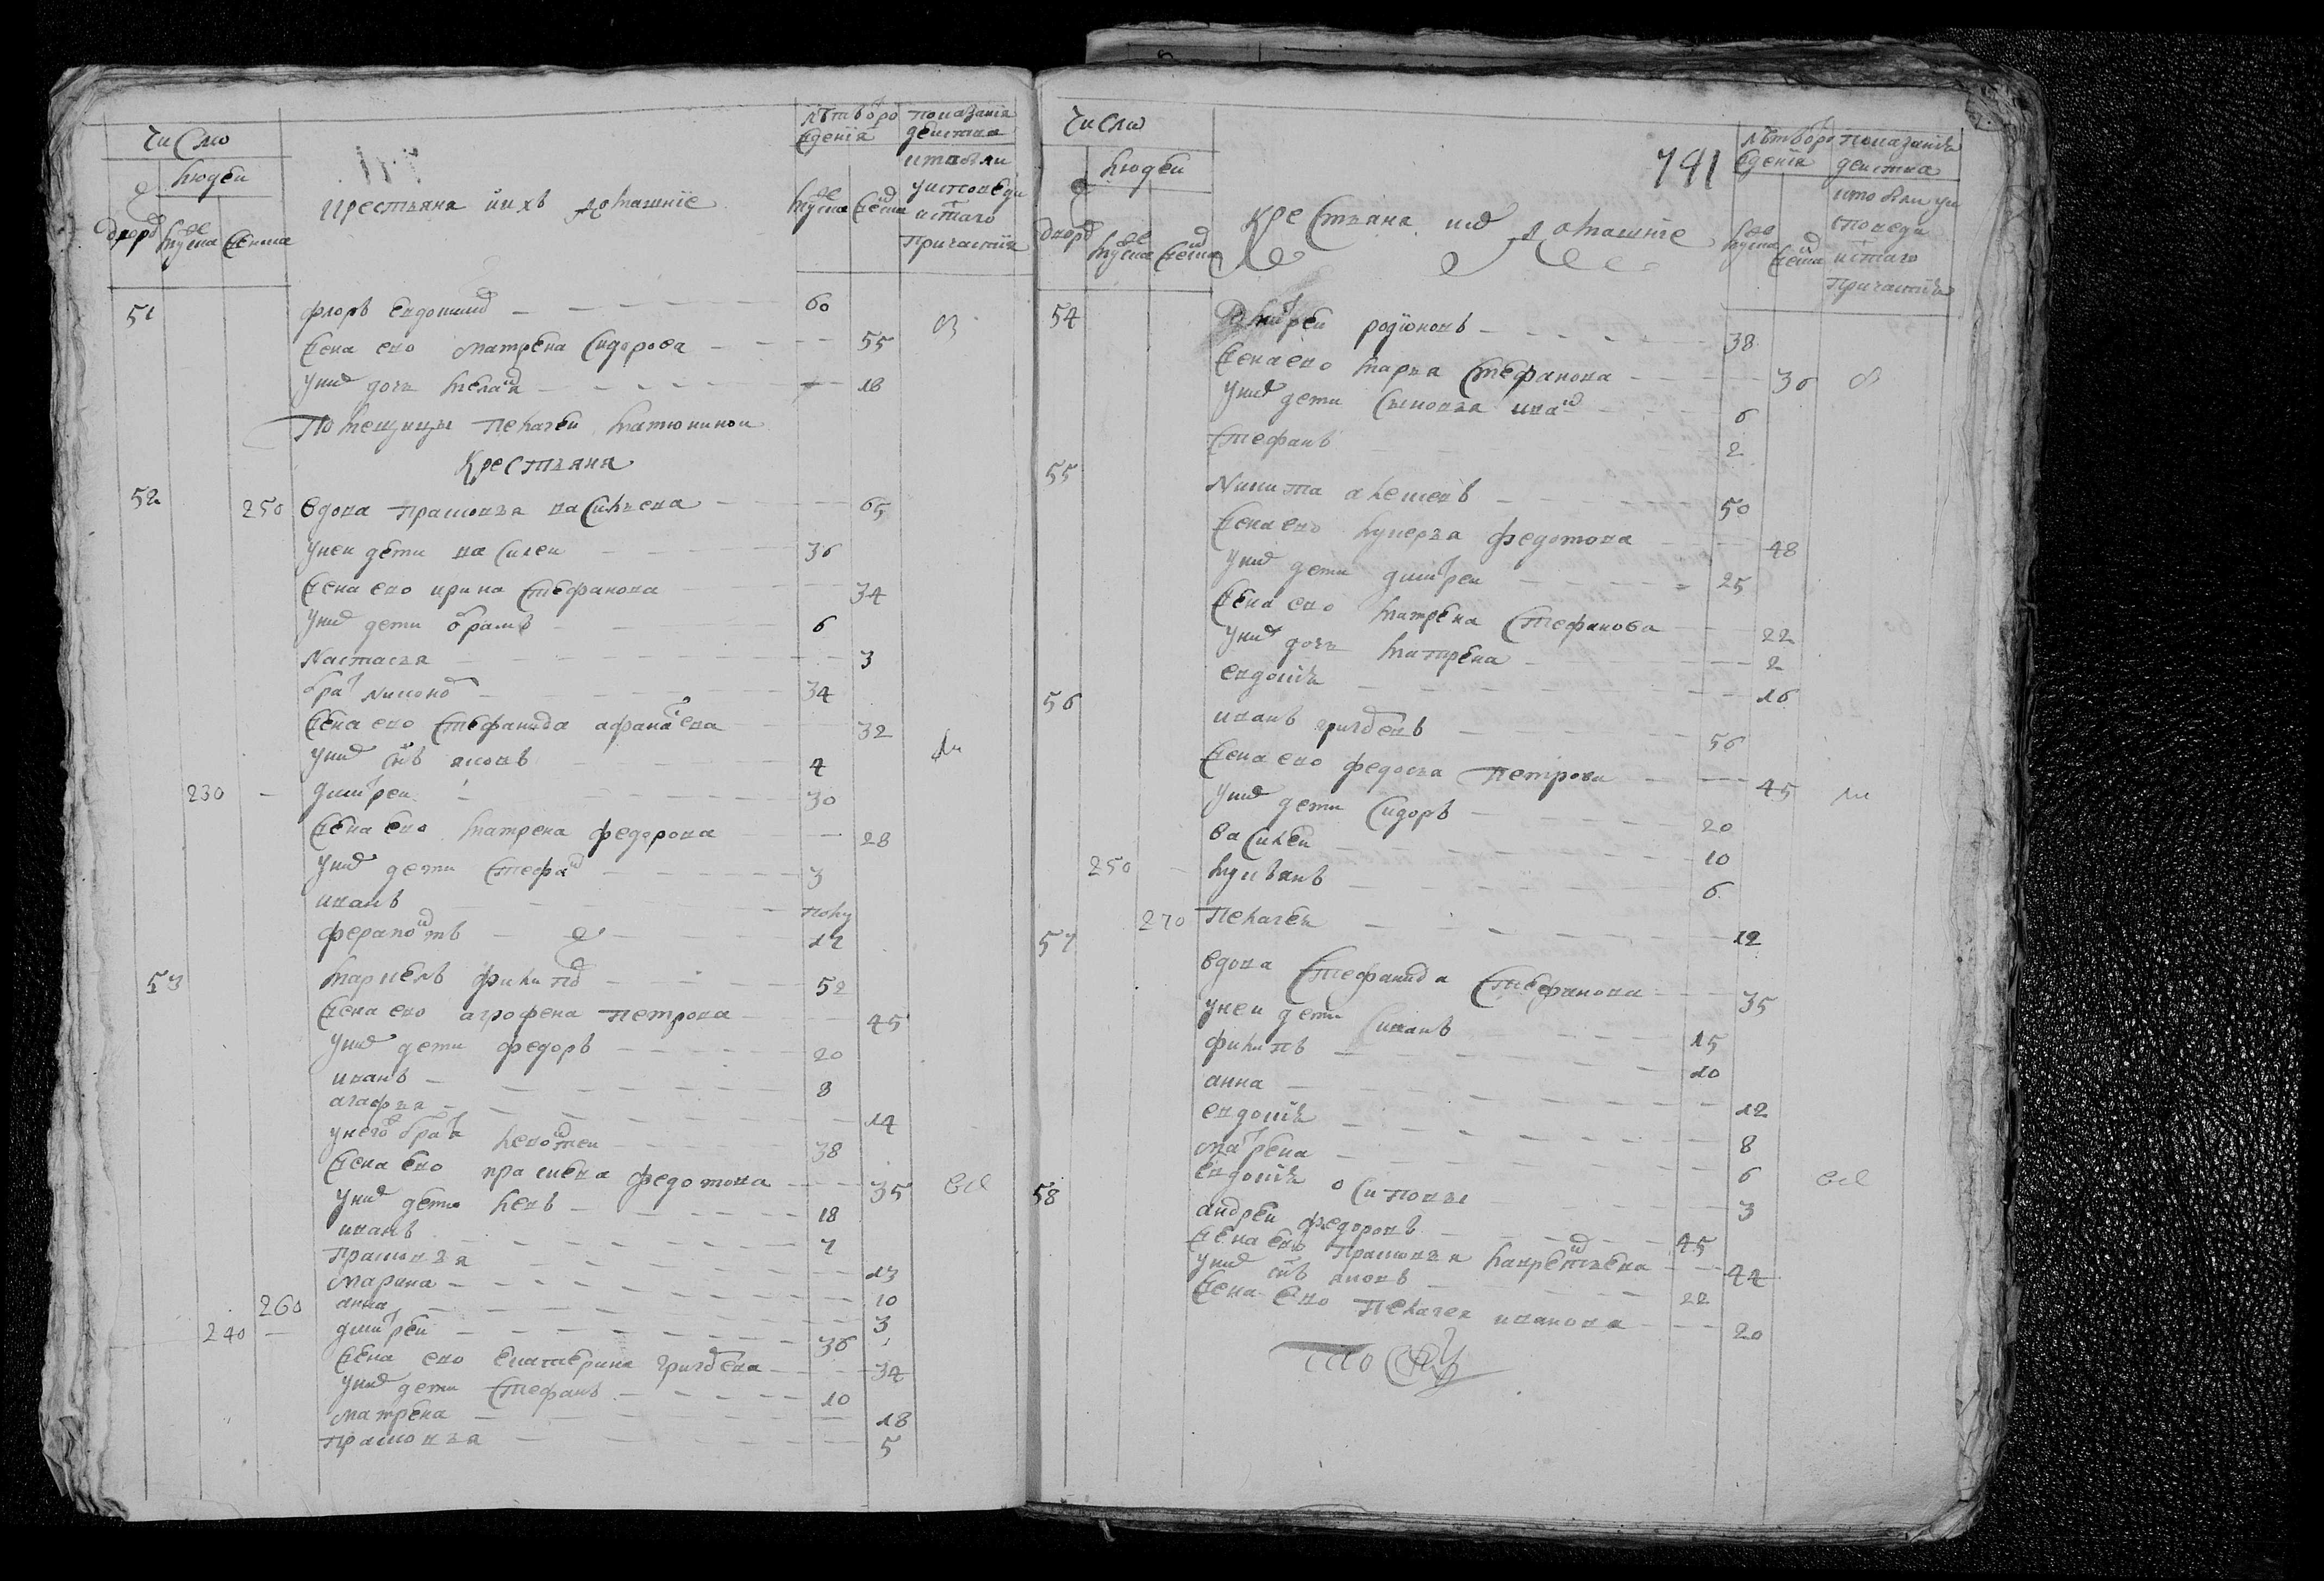 Число
людей
дворъ
мужеска
женска
крестьяня иихъ домашнїе
лѣтъ от рождения
мужеска
женска
показанїя действа
кто был
у исповеди
и стаго
причастия
51 флоръ евдокимо 60
жена ево матрена сидорова 55
у них дочь мелания 18
Помещицы пелагеи матюнинои
Крестьяня
52 250 вдова прасковья васильева 65
у неи дети василеи 36
жена ево ирина стефанова 34
у них дети абрамъ 6
настасья 3
братъ никоно 34
жена ево стефанида афанасева 32
у них снъ яковъ 4
230 дмитреи 30
жена ево матрена федорова 28
у них дети стефан 3
иванъ полу
ферапонтъ 12
53 маркелъ филипо 52
жена ево агрофена петрова 45
у них дети федоръ 20
иванъ 8
агафья 14
у него братя леонтеи 38
жена ево праскева федотова 35
у них дети левъ 18
иванъ 7
прасковья 13
марина 10
260 анна 3
240 дмитреи 36
жена ево екатерина григорева 34
у них дети стефанъ 10
матрена 18
прасковья 5
Число
людей
дворъ
мужеска
женска
741
Крестьяня их домашнїе
лѣтъ от рождения
мужеска
женска
показания действа
кто были у исповеди
и стаго
причастия
54 Дмитреи родїоновъ 38
жена ево марья стефанова 36
у них дети сыновья иван 6
стефанъ 2
55 Никита алексеевъ 50
жена ево лукерья федотова 48
у них дети дмитреи 25
жена ево матрена стефанова 22
у них дочь матрена 2
евдокия 16
56 иванъ григоревъ 56
жена ево федосья петрова 45
у них дети сидоръ 20
василеи 10
250 лукьянъ 6
270 пелагея 12
57 вдова стефанида стефанова 35
у неи дети иванъ 15
филипъ 10
анна 12
евдокия 8
матрена 6
евдокия осиповы 3
58 андреи федоровъ 45
жена ево прасковья лаврентьева 44
у них снъ яковъ 22
жена ево пелагея иванова 20